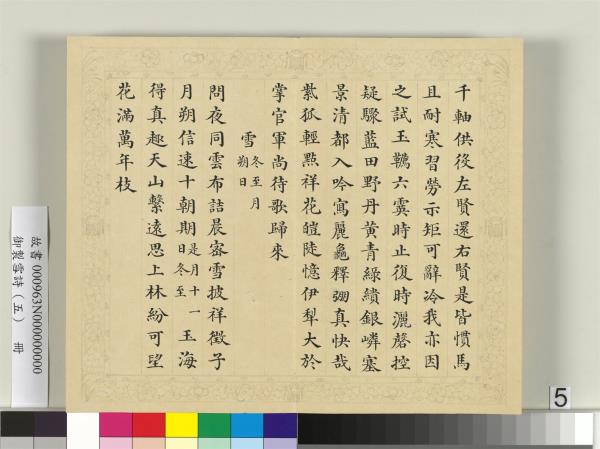 千軸供後左賢還右賢是皆慣馬
且耐寒習勞示矩可辭冷我亦因
之試玉韉六霙時止復時灑磬控
疑驟藍田野丹黃青綠繢銀嶙塞
景清都入吟寫麗龜釋弸真快哉
紫狐輕點祥花皚陡憶伊犁大於
掌官軍尚待歌歸來
雪冬至月朔日
問夜同雲布詰晨密雪披祥徵子
月朔信速十朝期是月十一日冬至玉海
得真趣天山繫遠思上林紛可望
花滿萬年枝
故書 000963N000000000
御製雪詩（五） 冊
5